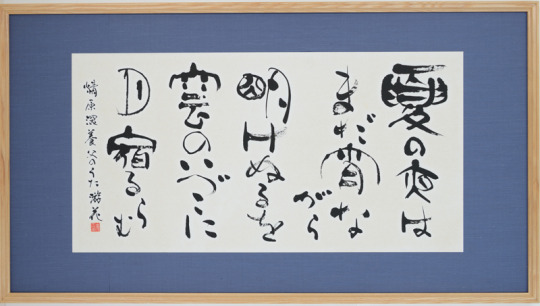 夏の夜は
まだ宵な
がら
明けぬるを
雲のいづこに
月宿るら
む
清原深養父のうた